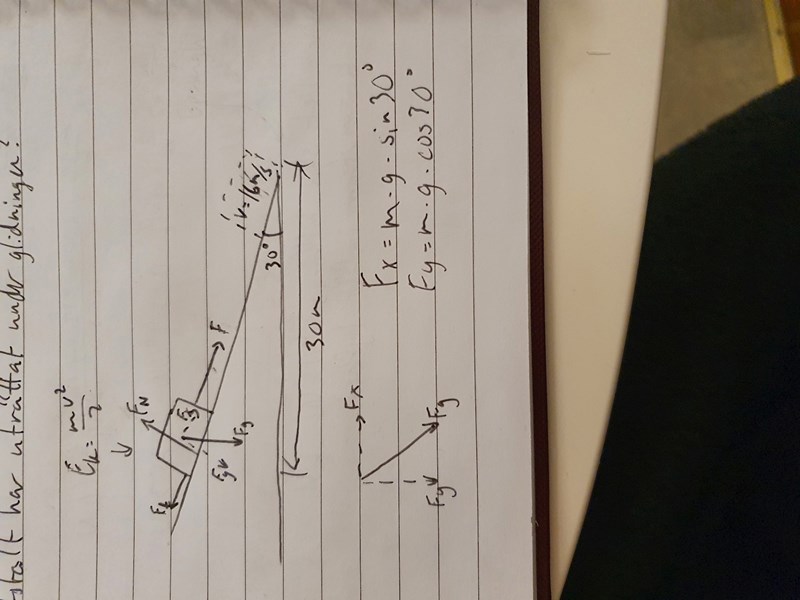 har uträttat under glidningen?
Ek = mv²/2
FN
F
Fg
v=16m/s
30°
30m
Fx
Fg
Fy
Fx = m·g·sin30°
Fy = m·g·cos30°